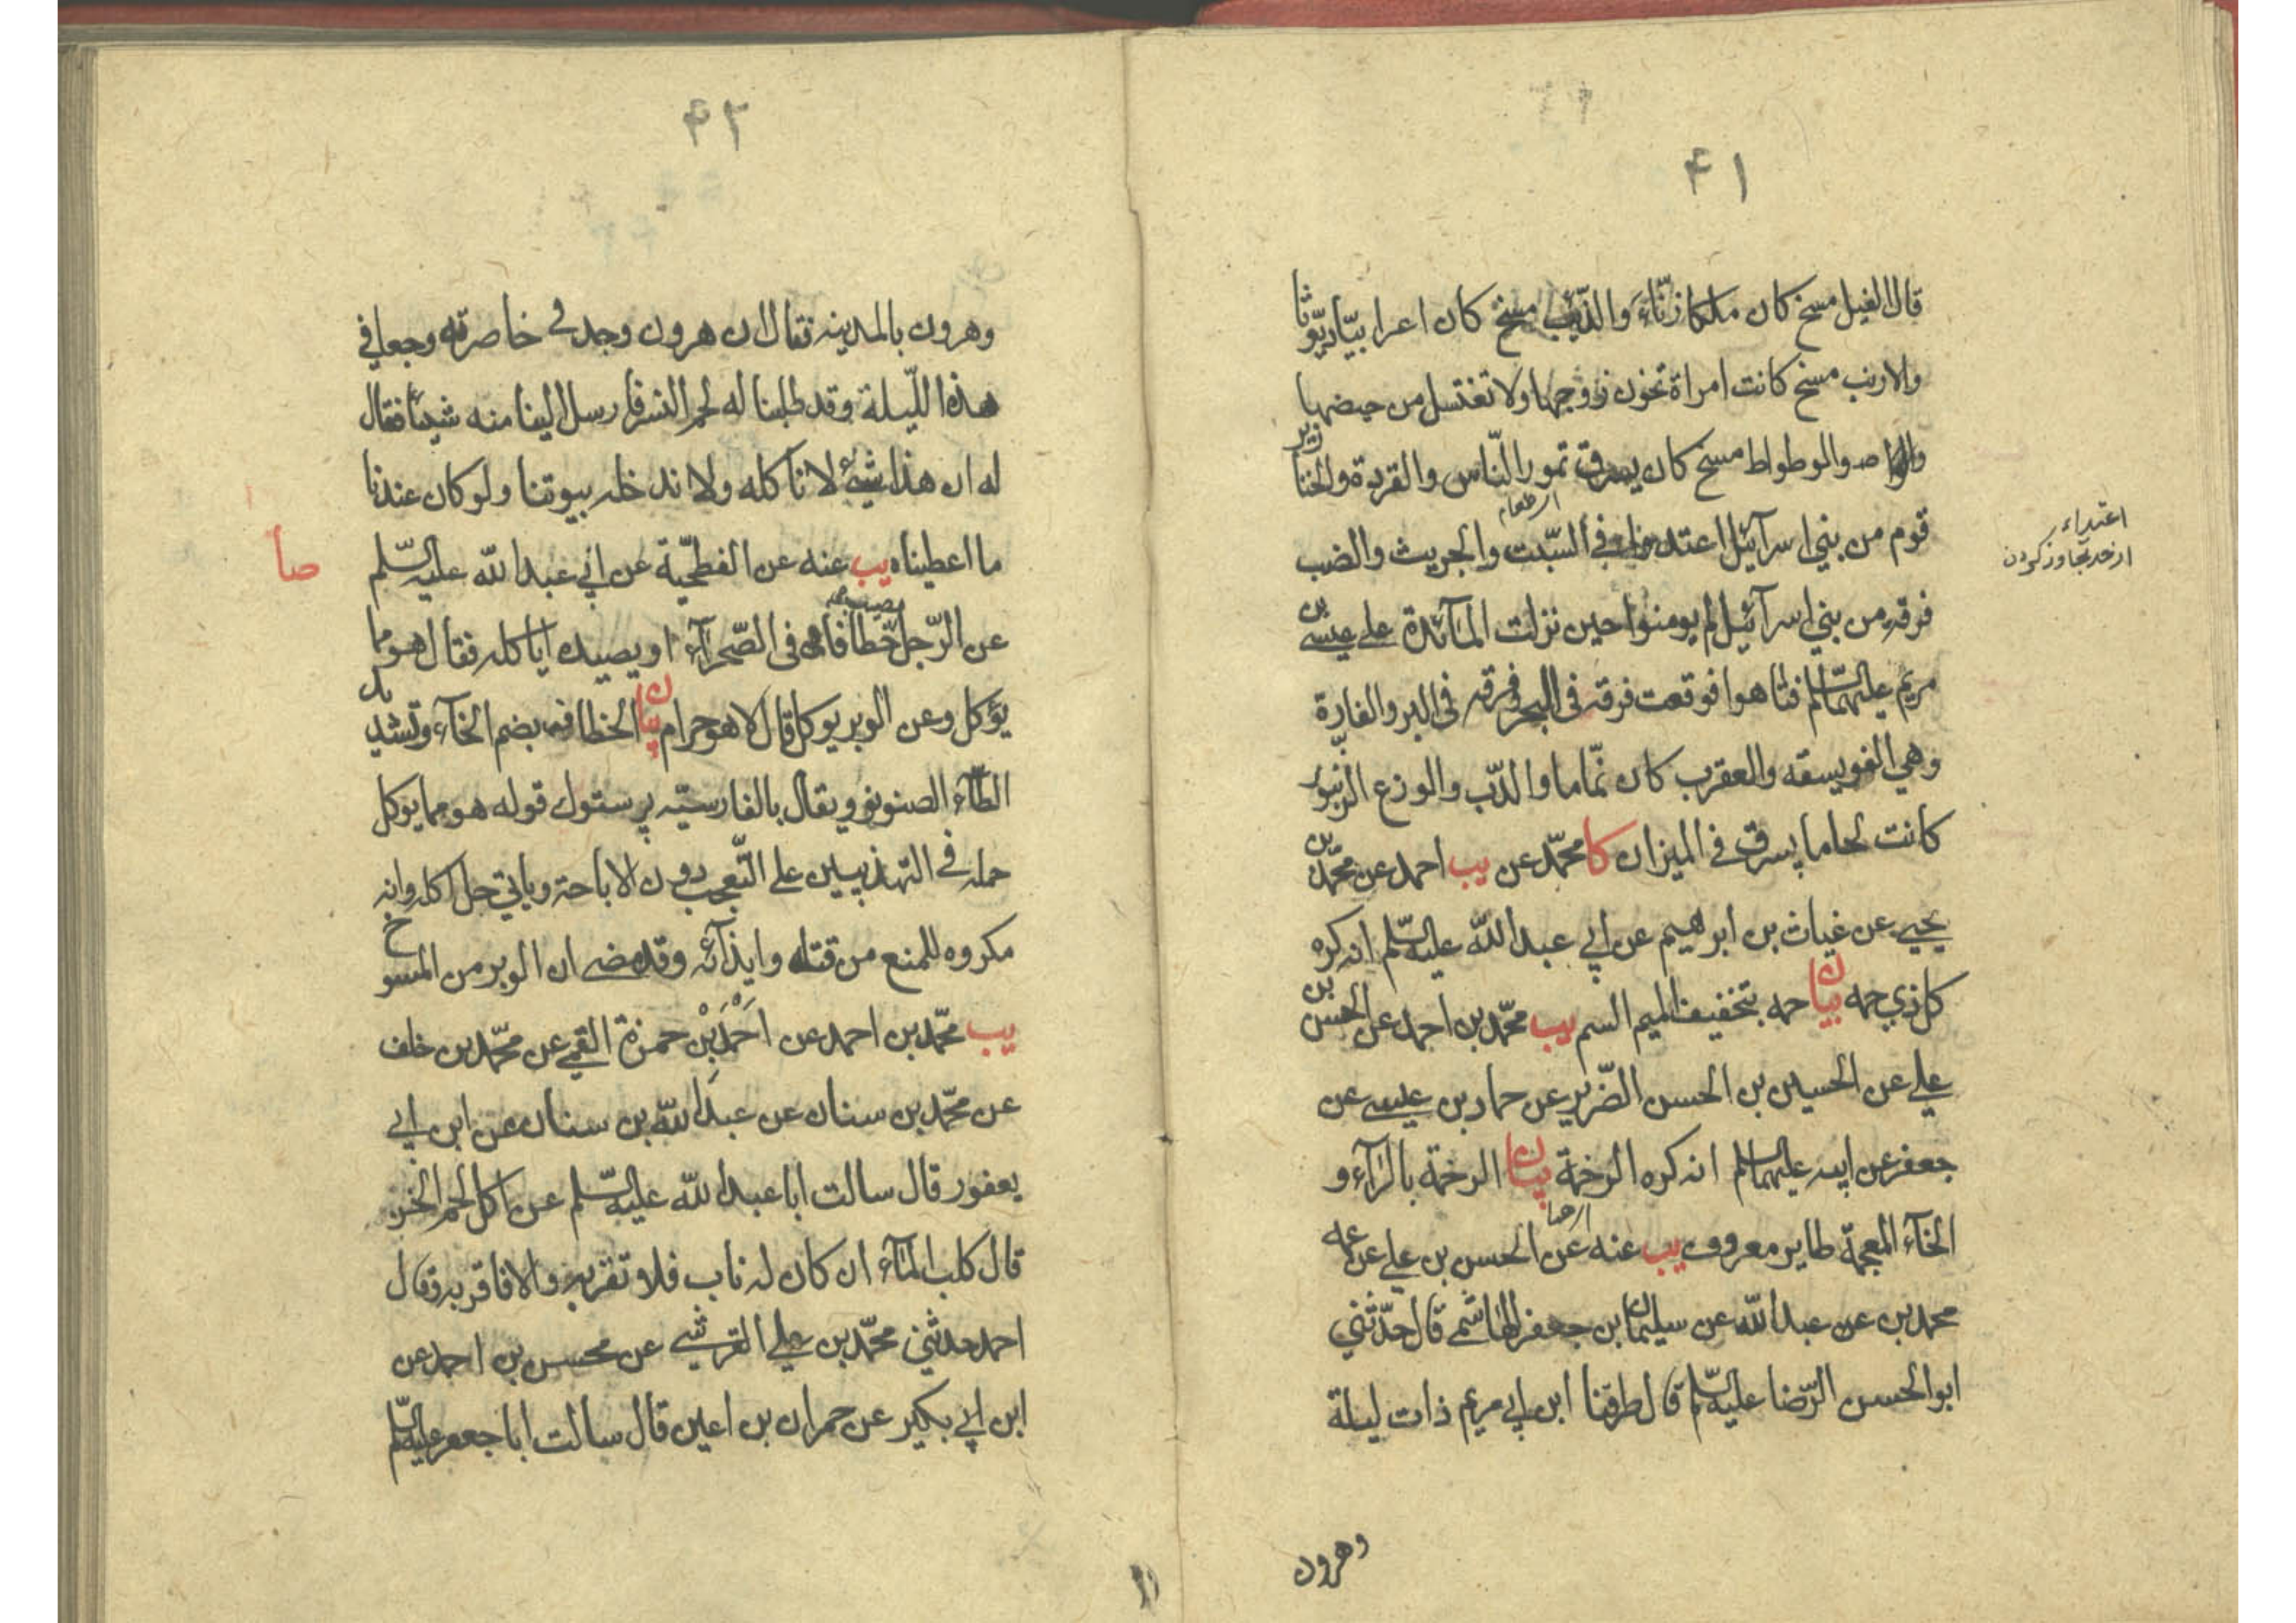 ۴۱
قال الفيل مسخ كان ملكا زنّاء والذّيب مسخ كان اعرابيّا ديّوثا
والارنب مسخ كانت امراة تخون زوجها ولا تغتسل من حيضها
والوطواط مسخ كان يسرق تمور النّاس والقردة والخنازير
قوم من بني اسرآئيل اعتدوا في السّبت والجريث والضب
اعتداء
از حد تجاوز كردن
فرقه من بني اسرآئيل لم يومنوا حين نزلت المآئدة على عيسى بن
مريم عليهما السّلم فتاهوا فوقعت فرقه فى البحر وفرقه فى البر والفارة
وهي الفويسقه والعقرب كان نمّاما والدّب والوزع الزّنبور
كانت لحاما يسرق في الميزان كا محمّد عن يب احمد عن محمّد بن
يحيى عن غياث بن ابرهيم عن ابي عبد اللّه عليه السّلم انه كره
كل ذي حمه بيان حمه بتخفيف الميم السم يب محمّد بن احمد عن الحسن بن
علي عن الحسين بن الحسن الضّرير عن حماد بن عيسى عن
جعفر عن ابيه عليهما السلم انه كره الرخمة بيان الرخمة بالرّآء و
الخآء المعجمة طاير معروف يب عنه عن الحسن بن علي عن عمه
محمد بن عن عبد اللّه عن سليمان بن جعفر الهاشمى قال حدّثني
ابو الحسن الرّضا عليه السّلم قال طرقنا ابن ابي مريم ذات ليلة
وهرون
۴۲
وهرون بالمدينه فقال ان هرون وجد في خاصرته وجعا في
هذه اللّيلة وقد طلبنا له لحم النسر فارسل الينا منه شيئا فقال
له ان هذا شيئ لا ناكله ولا ندخله بيوتنا ولو كان عندنا
ما اعطيناه يب عنه عن الفطحيّة عن ابي عبد اللّه عليه السّلم
صا
عن الرّجل يصيب خطافا فى الصّحرآء او يصيده اياكله فقال هو مما
يؤكل وعن الوبر يوكل قال لا هو حرام بيان الخطاف بضم الخآء وتشديد
الطّآء الصنونو ويقال بالفارسيّه پرستوك قوله هو مما يوكل
حمله في التهذيبين على التّعجب دون الاباحة وياتي حل اكله وانه
مكروه للمنع من قتله وايذآئه وقد مضى ان الوبر من المسوخ
يب محمّد بن احمد عن احمد بن حمزة القمي عن محمّد بن خلف
عن محمّد بن سنان عن عبد اللّه بن سنان عن ابن ابي
يعفور قال سالت ابا عبد اللّه عليه السّلم عن اكل لحم الخز
قال كلب المآء ان كان له ناب فلا تقربه والا فاقربه وقال
احمد حدثني محمّد بن علي القرشي عن محسن بن احمد عن
ابن ابي بكير عن حمران بن اعين قال سالت ابا جعفر عليه السّلم